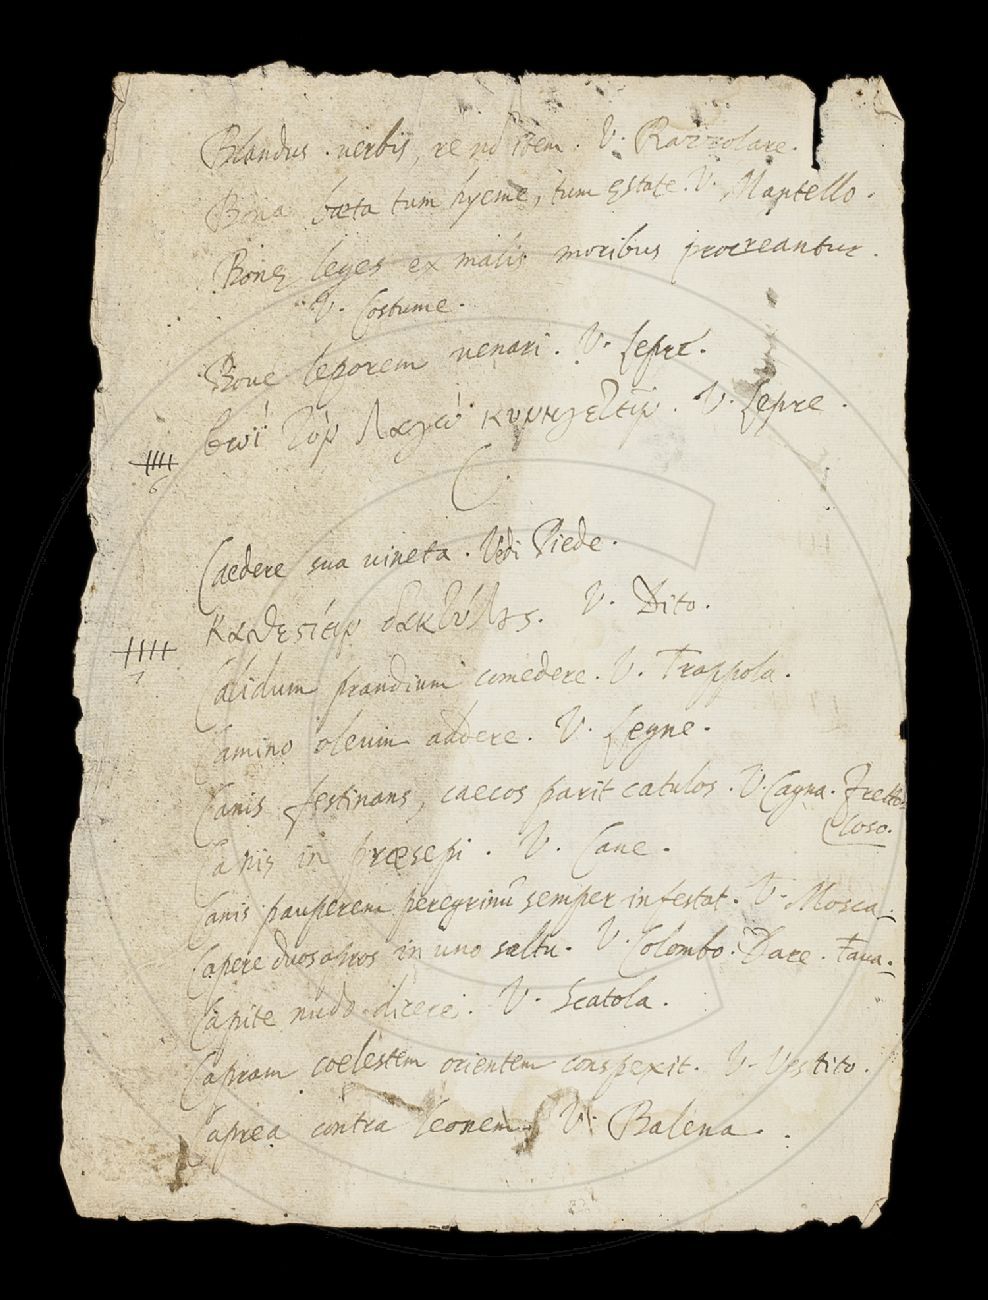 Blandus verbis, re nō idem. V. Razzolare.
Bona bæta tum hyeme, tum ęstate. V. Mantello.
Bonę leges ex malis moribus procreantur.
V. Costume.
Boue leporem uenari. V. Lepre.
βοῒ τὸν λαγὼ κυνηγετεῖν. V. Lepre.
C.
Caedere sua uineta. Vedi Piede.
V. Dito.
Calidum prandium comedere. V. Trappola.
Camino oleum addere. V. Legne.
Canis festinans, caecos parit catulos. V. Cagna. Fretto-
loso.
Canis in præsepi. V. Cane.
Canis pauperem peregrinū semper infestat. V. Mosca.
Capere duos apros in uno saltu. V. Colombo. Dare. Faua.
Capite nudo dicere. V. Scatola.
Capram coelestem orientem conspexit. V. Vestito.
Caprea contra leonem. V. Balena.